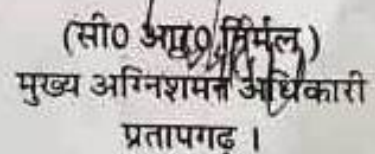 (सी० आर०निर्मल)
मुख्य अग्निशमन अधिकारी
प्रतापगढ़ ।